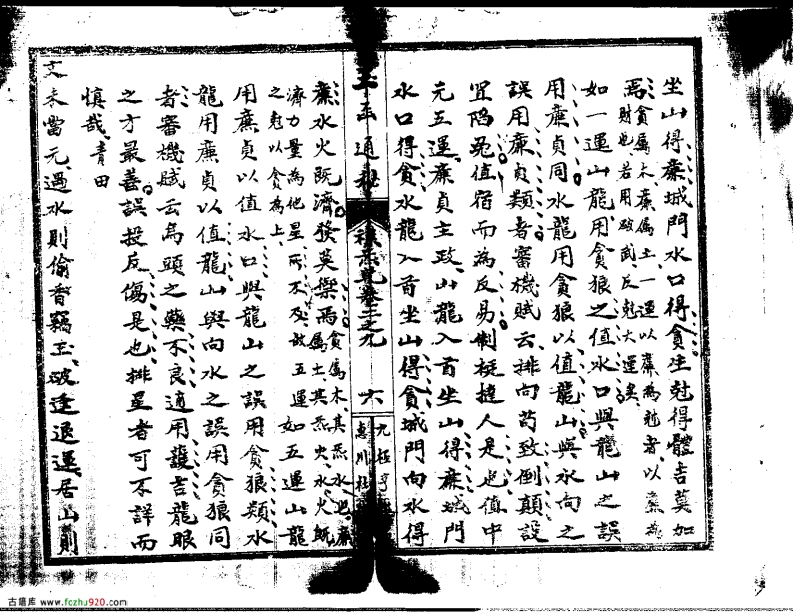 坐山得廉城門水口得貪生尅得體吉莫如
焉貪属木廉属土一運以廉為尅者以廉為
財也若用破武反尅大運矣
如一運山龍用貪狼之值水口與龍山之誤
用廉貞同水龍用貪狼以值龍山與水向之
誤用廉貞類者審機賦云排向苟致倒顛設
宜陷冤值宿而為反易制挺撻人是也值中
元五運廉貞主政山龍入首坐山得廉城門
水口得貪水龍入首坐山得貪城門向水得
通秘
卷二之九
六
廉水火既濟發英傑焉貪属木其炁水也廉
属土其炁火水火既
濟力量為他星所不及故五運
之尅以貪為上
如五運山龍
用廉貞以值水口與龍山之誤用貪狼類水
龍用廉貞以值龍山與向水之誤用貪狼同
者審機賦云為頭之藥不良適用護吉龍眼
之方最善誤投反傷是也排星者可不詳而
慎哉青田
文未當元遇水則偷香竊玉破逢退運居山則
古籍库 www.fczhu920.com